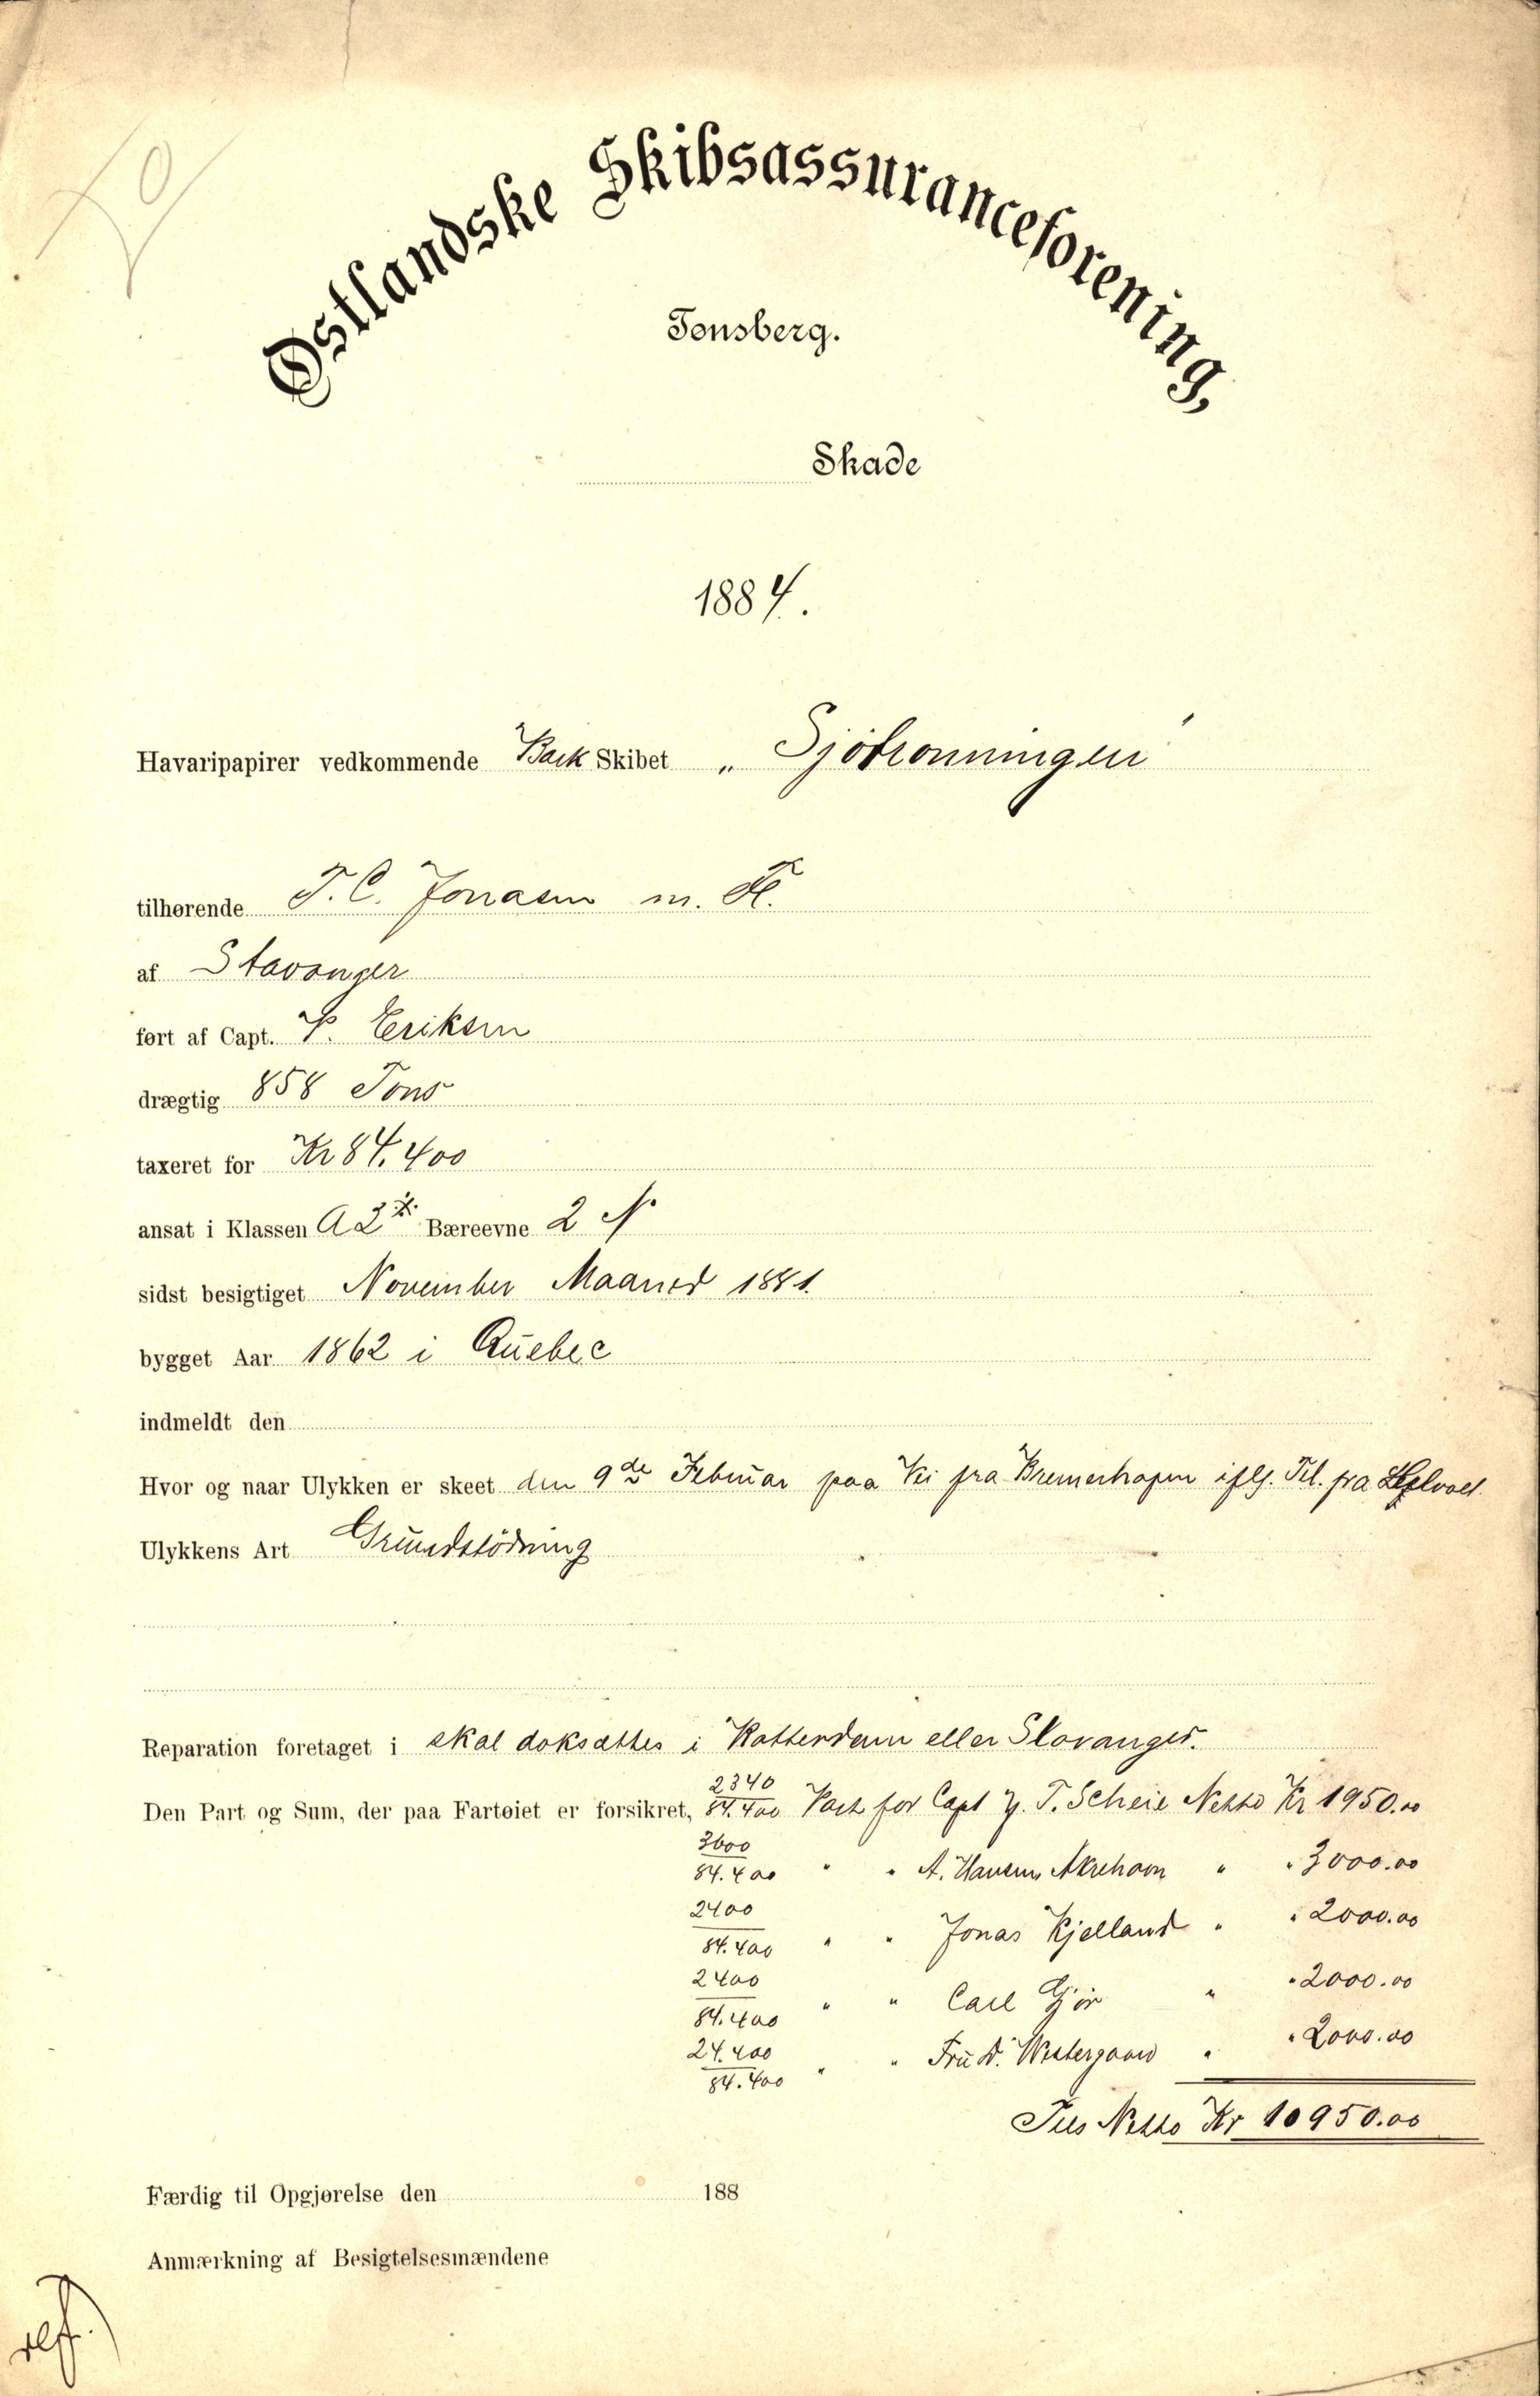 Østlandske Skibsassuranceforening,
Tønsberg.
Skade
1884.
Havaripapirer vedkommende Bark Skibet „ Sjødronningen "
tilhørende T. C. Jonasen m. Fl.
af Stavanger
ført af Capt. P. Eriksen
drægtig 858 Tons
taxeret for Kr 84.400
ansat i Klassen A 2 Bæreevne 2
sidst besigtiget November Maaned 1881.
bygget Aar 1862 i Quebec
indmeldt den
Hvor og naar Ulykken er skeet den 9de Februar paa Vei fra Bremerhafen iflg. Tel. fra
Ulykkens Art Grundstödning
Reparation foretaget i skal doksættes i Rotterdam eller Stavanger.
Den Part og Sum, der paa Fartøiet er forsikret, 2340/84.400 Part for Capt T. Scheie Netto Kr 1950.00
3600/84.400 " " A. Hansen Akrehavn " " 3000.00
2400/84.400 " " Jonas Kjelland " " 2000.00
2400/84.400 " " Carl Gjör " " 2000.00
24.400/84.400 " " Fru D. Westergaard " " 2000.00
Tils Netto Kr 10950.00
Færdig til Opgjørelse den 188
Anmærkning af Besigtelsesmændene